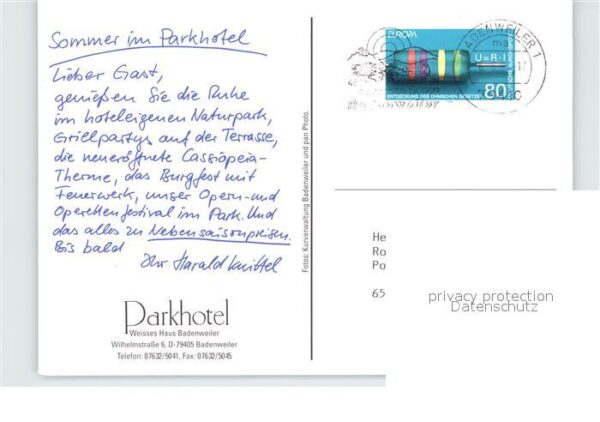 Sommer im Parkhotel
Lieber Gast,
genießen Sie die Ruhe
im hoteleigenen Naturpark,
Grillpartys auf der Terrasse,
die neueröffnete Cassiopeia-
Therme, das Burgfest mit
Feuerwerk, unser Opern- und
Operettenfestival im Park. Und
das alles zu Nebensaisonpreisen.
Bis bald
Ihr Harald Knittel
Parkhotel
Weisses Haus Badenweiler
Wilhelmstraße 6, D-79405 Badenweiler
Telefon: 07632/5041, Fax: 07632/5045
Fotos: Kurverwaltung Badenweiler und pan Photo.
EUROPA
U=R·I
80
ENTDECKUNG DES OHMSCHEN GESETZES
BADENWEILER 1
He
Ro
Pa
65
privacy protection
Datenschutz